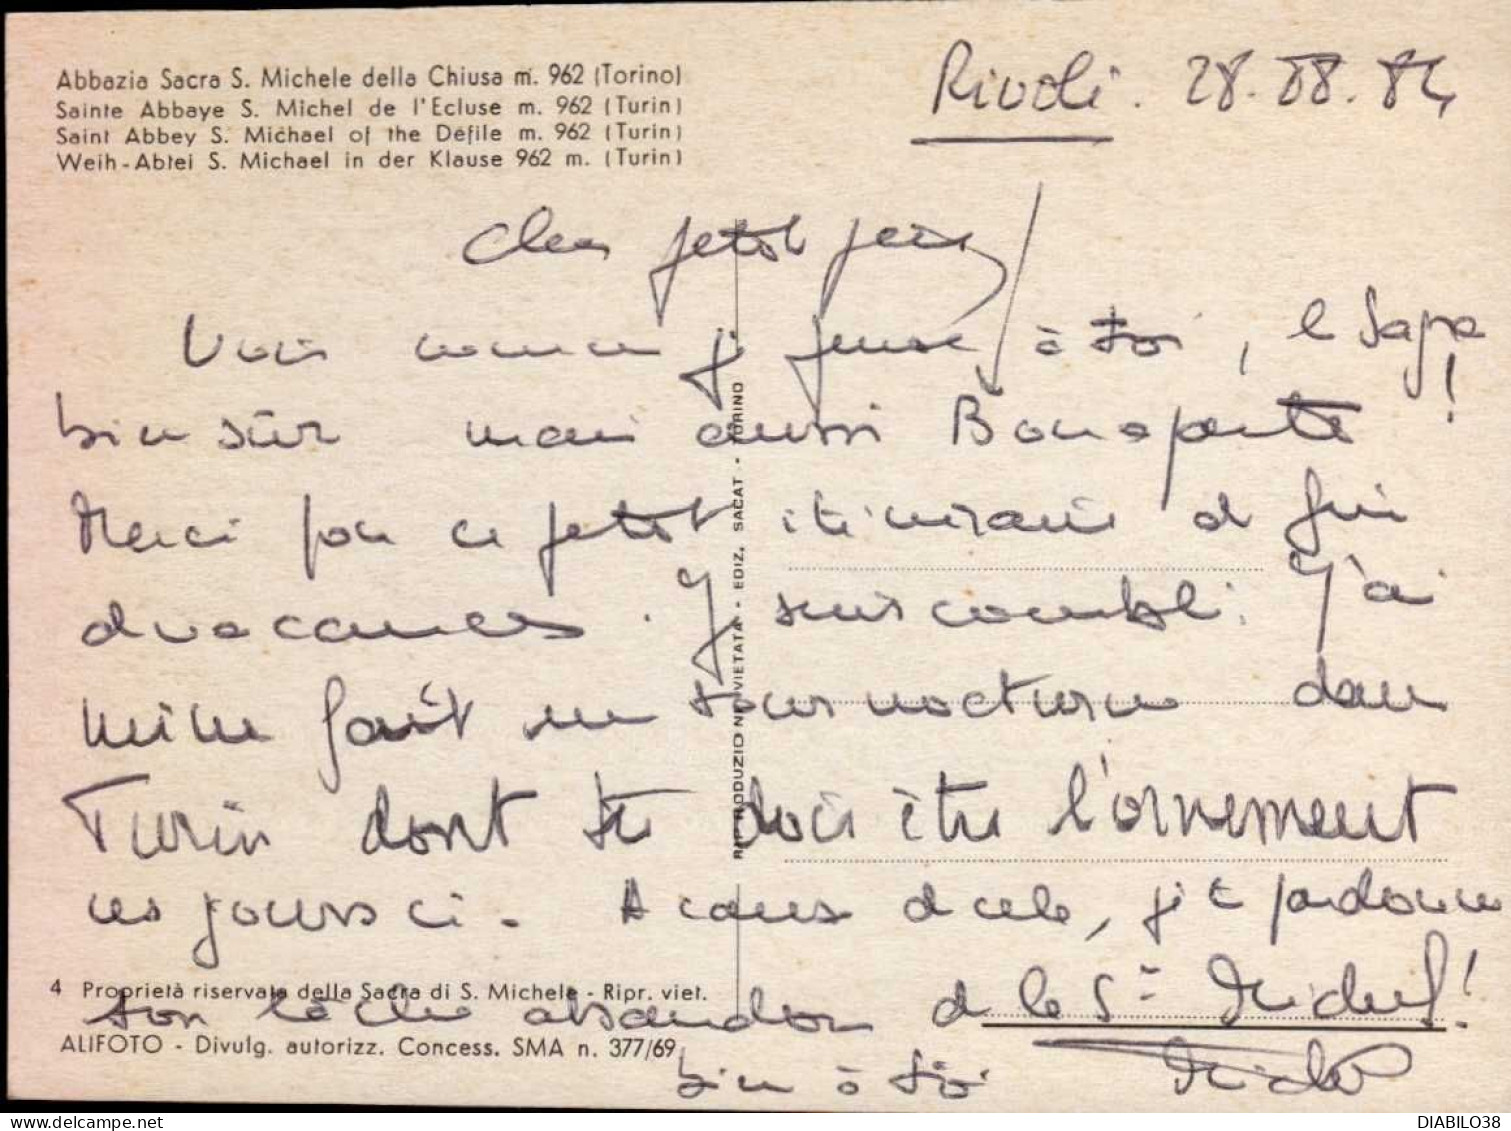 Abbazia Sacra S. Michele della Chiusa m. 962 (Torino)
Sainte Abbaye S. Michel de l'Ecluse m. 962 (Turin)
Saint Abbey S. Michael of the Défile m. 962 (Turin)
Weih-Abtei S. Michael in der Klause 962 m. (Turin)
Rivoli. 28.08.84
Cher petit
Vois comme je pense à toi,
bien sûr mais aussi Bonaparte !
Merci pour ce petit itinéraire de fin
de vacances. Je suis comblé. J'ai
même fait un tour nocturne dans
Turin dont tu dois être l'ornement
ces jours ci. A cause de cela, je te pardonne
4 Proprietà riservata della Sacra di S. Michele - Ripr. viet.
ton lâche abandon de la St Michel !
ALIFOTO - Divulg. autorizz. Concess. SMA n. 377/69
bien à toi Michel
RIPRODUZIONE VIETATA - EDIZ. SACAT - TORINO
DIABILO38